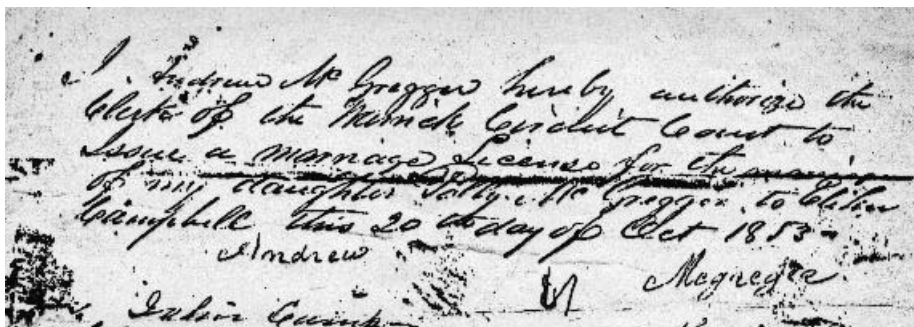 I Andrew Mc Gregger hereby authorize the
Clerk of the Warrick Circuit Court to
Issue a marriage License for the
of my daughter Sally Mc Gregger to Elihu
Campbell this 20th day of Oct 1853
Andrew Mcgregger